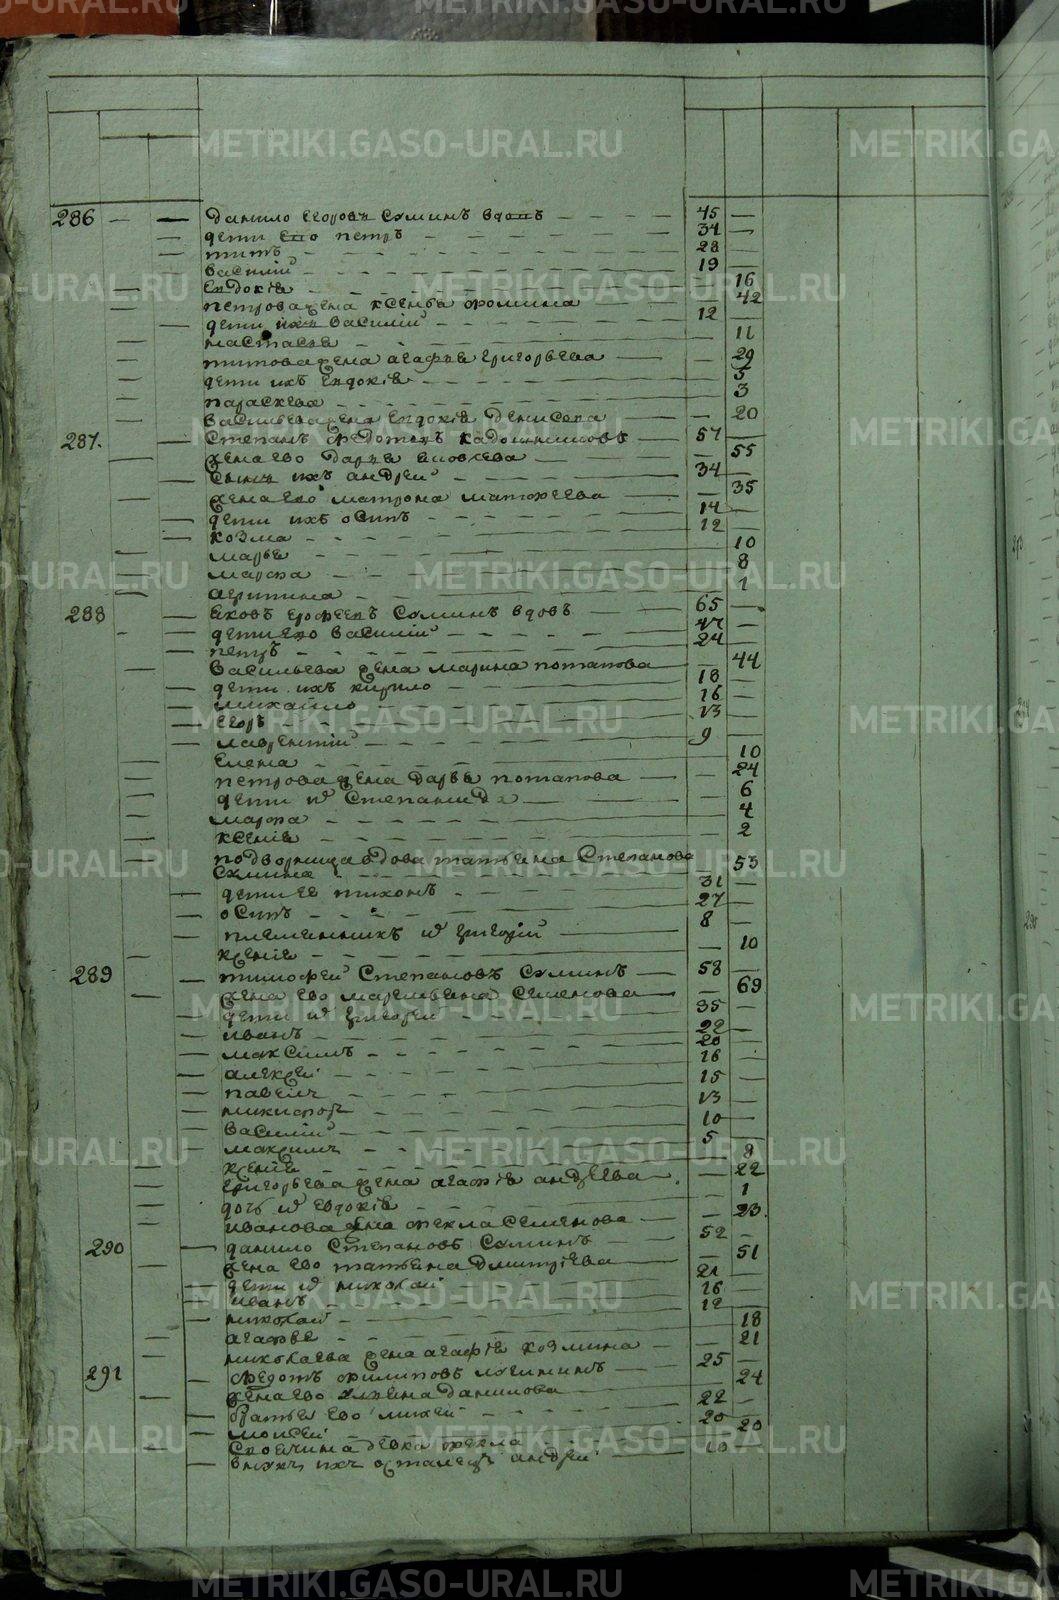 286 данило егоровъ соминъ вдовъ 45
дети ево петръ 34
титъ 28
василий 19
евдокия 16
петрова жена ксенья фомина 42
дети ихъ василий 12
настасья 11
титова жена агафья григорьева 29
дети ихъ евдокия 5
параскева 3
васильева жена евдокия денисова 20
287. степанъ федотовъ 57
жена ево дарья яковлева 55
сынъ ихъ андрей 34
жена ево матрона матфеева 35
дети ихъ осипъ 14
козма 12
марья 10
марфа 8
агрипина 1
288 яковъ ерофеевъ соминъ вдовъ 65
дети ево василий 47
петръ 24
васильева жена марина потапова 44
дети ихъ кирило 18
михайло 16
егоръ 13
лаврентий 9
елена 10
петрова жена дарья потапова 24
дети их степанида 6
марфа 4
ксения 2
подворница вдова татьяна степанова 53
сомина
дети ее тихонъ 31
осипъ 27
племянникъ их григорий 8
ксения 10
289 тимофей степановъ соминъ 58
жена ево маремьяна семенова 69
дети их григорей 35
иванъ 22
максимъ 20
алексей 16
павелъ 15
никифор 13
василий 10
максимъ 5
ксения 9
григорьева жена агафия андреева 22
дочь их евдокия 1
иванова жена фекла семенова 23
290 данило степановъ соминъ 52
жена ево татьяна дмитриева 51
дети их николай 21
иванъ 16
николай 12
агафья 18
николаева жена агафия козмина 21
291 федотъ филиповъ логининъ 25
жена ево улияна данилова 24
братья ево михей 22
моисей 20
девка фекла 20
внукъ ихъ андрей 10
METRIKI.GASO-URAL.RU